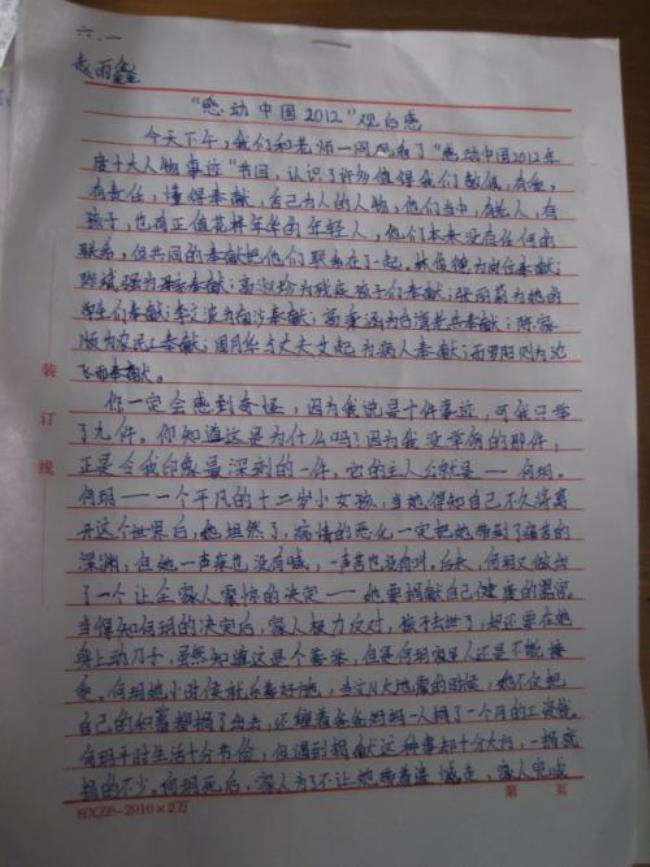 六.一
赵雨鑫
“感动中国2012”观后感
今天下午,我们和老师一同观看了“感动中国2012年
度十大人物事迹”节目,认识了许多值得我们敬佩,有
有责任,懂得奉献,舍己为人的人物,他们当中,有老人,有
孩子,也有正值花样年华的年轻人,他们本来没有任何的
联系,但共同的奉献把他们联系在了一起,林俊德为岗位奉献;
陈斌强为母亲奉献;高淑珍为残疾孩子们奉献;张丽莉为她的
学生们奉献;李文波为南沙奉献;高秉涵为台湾老兵奉献;陈家
顺为农民工奉献;周月华与丈夫艾起为病人奉献;而罗阳则为
飞而奉献。
你一定会感到奇怪,因为我说是十件事迹,可我只举
了九件。你知道这是为什么吗?因为我没举例的那件,
正是令我印象最深刻的一件,它的主人公就是——何玥。
何玥——一个平凡的十二岁小女孩,当她得知自己不久将离
开这个世界后,她坦然了,病情的恶化一定把她带到了痛苦的
深渊,但她一声疼也没有喊,一声苦也没有叫。后来,何玥又做出
了一个让全家人震惊的决定——她要捐献自己健康的器官。
当得知何玥的决定后,家人极力反对,孩子去世了,却还要在她
身上动刀子,虽然知道这是个善举,但是何玥家里人还是不能接
受。何玥她小时候就乐善好施,当汶川大地震的时候,她不仅把
自己的积蓄都捐了出去,还缠着爸爸妈妈一人捐了一个月的工资钱。
何玥平时生活十分节俭,但遇到捐献这种事却十分大方,一捐就
捐的不少。何玥死后,家人为了不让她带着遗憾走,家人完成
装
订
线
HXZP-2010×2万
第 页